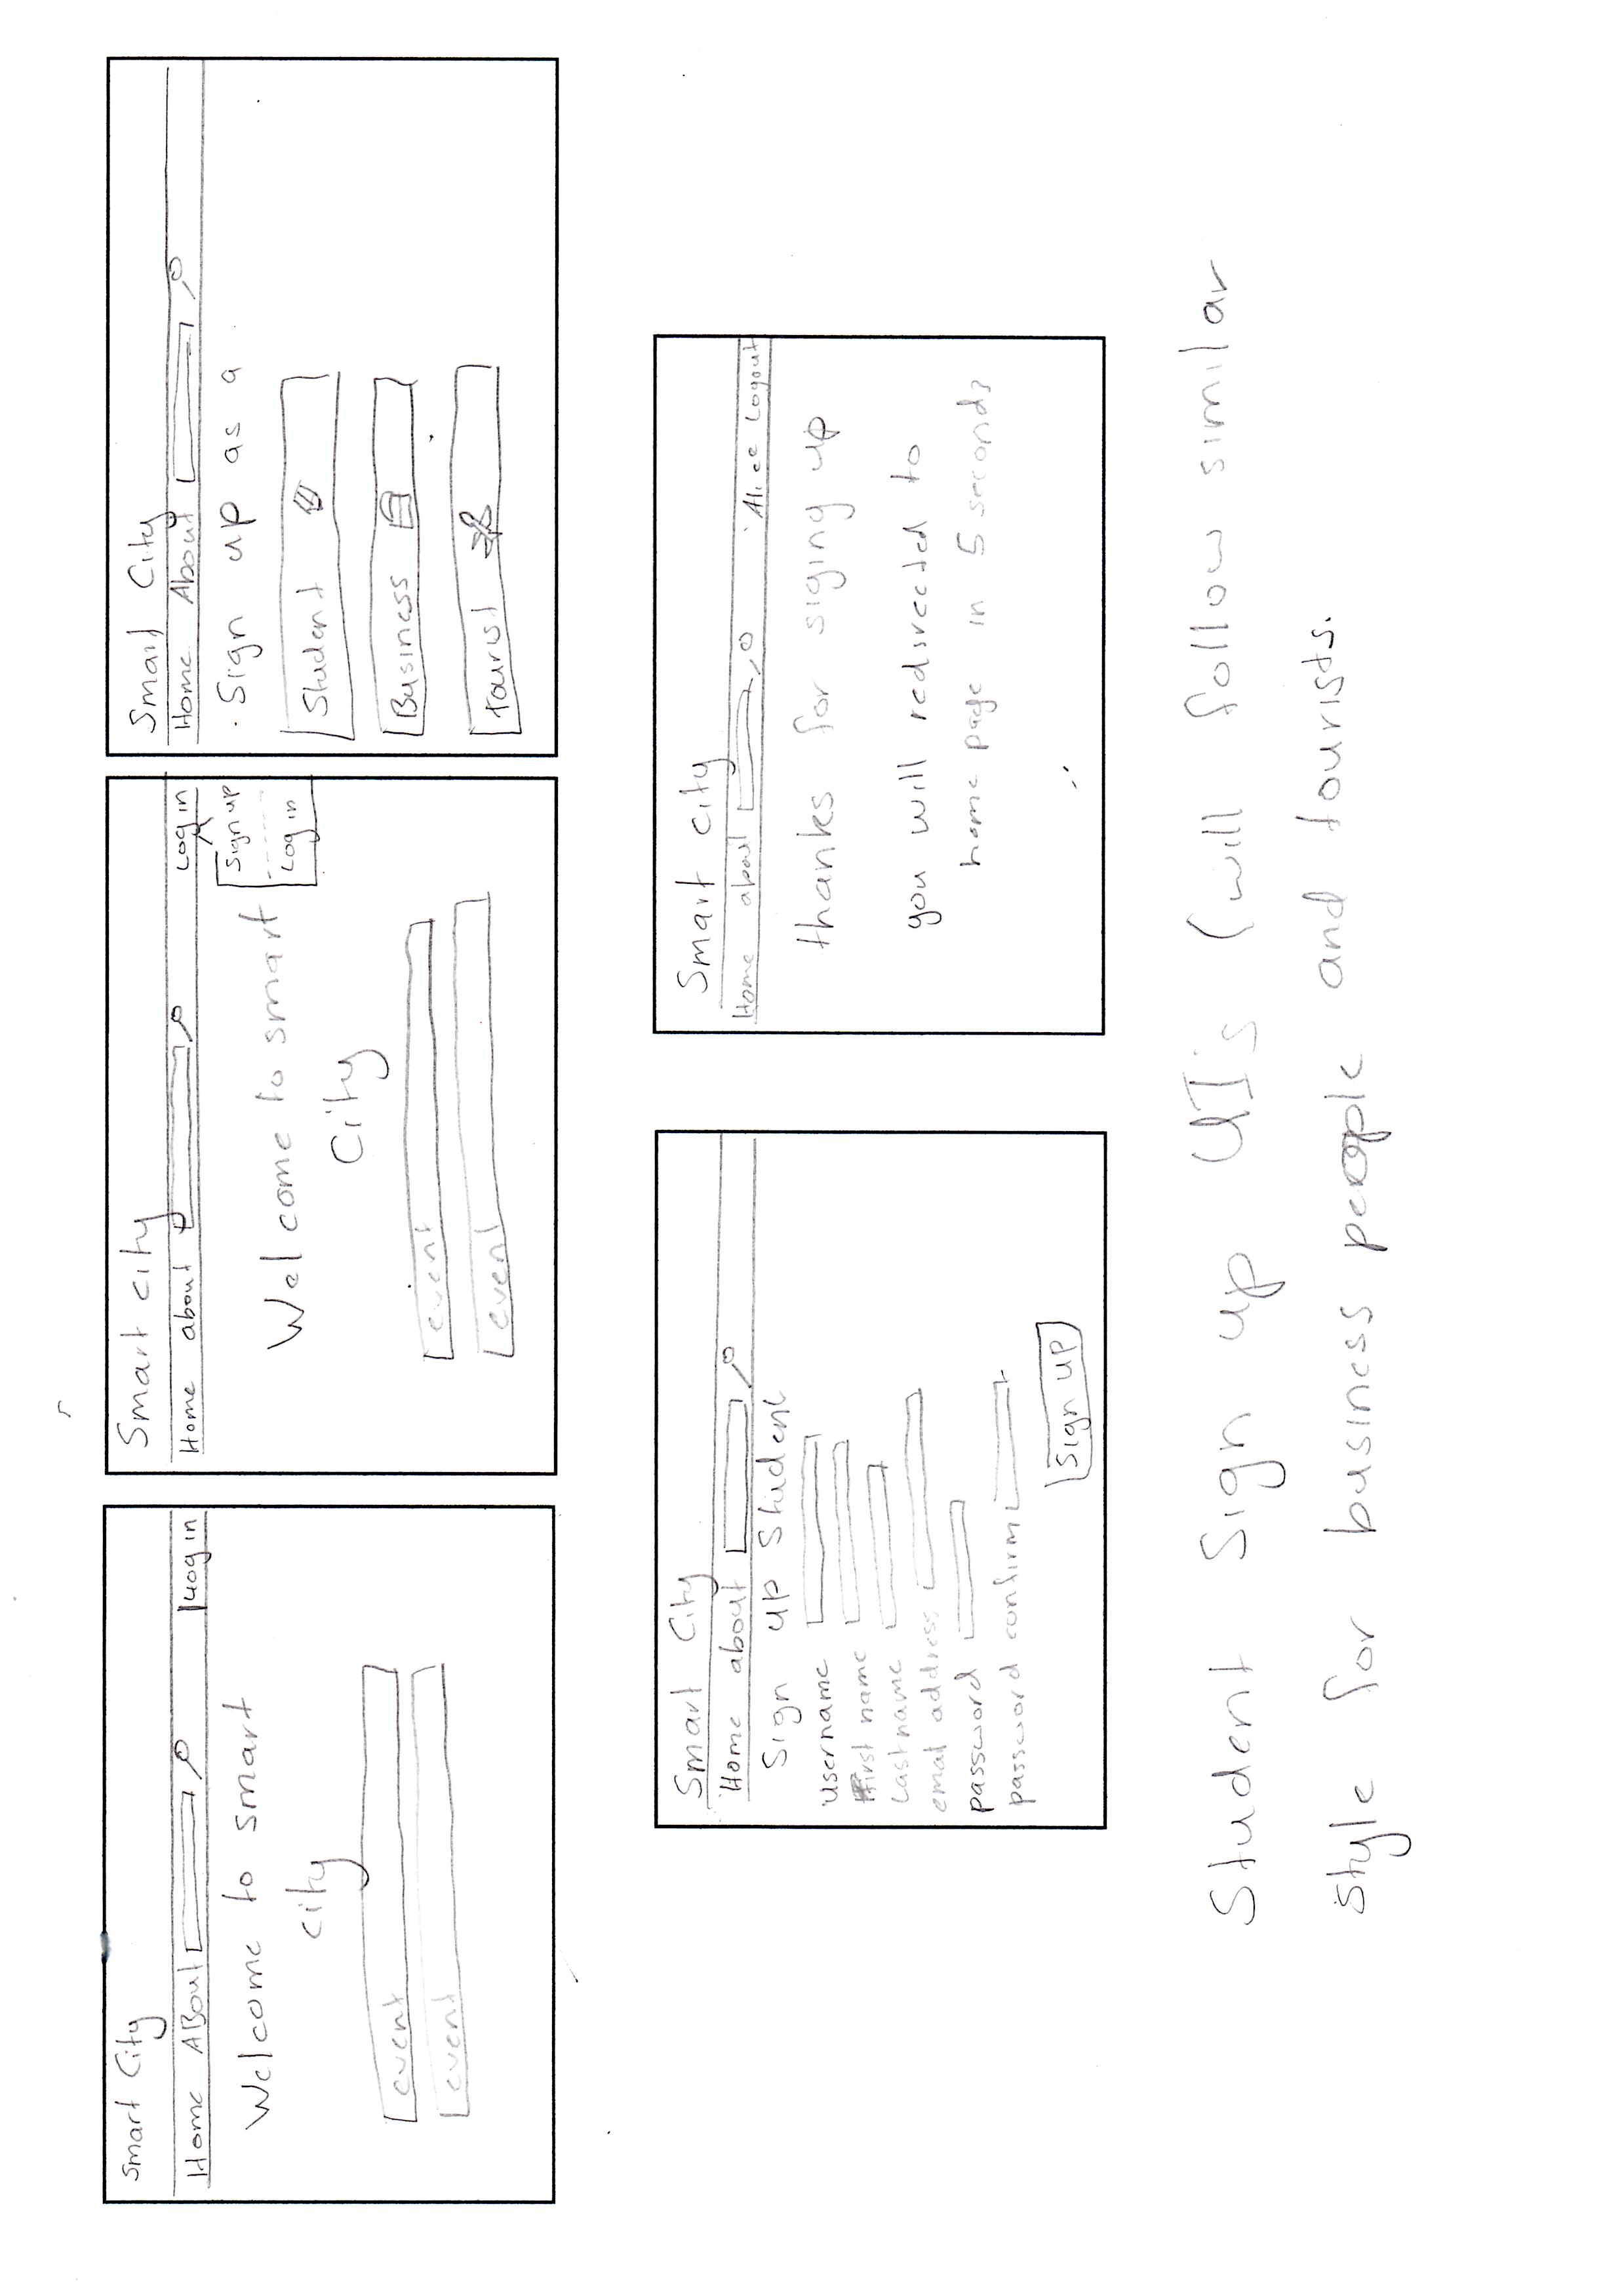 Smart City
Home ABout Login
Welcome to smart
city
event
event
Smart city
Home about Login
Sign up
Log in
Welcome to smart
City
event
event
Smart City
Home About
. Sign up as a
Student
Business
tourist
Smart City
Home about
Sign up Student
username
First name
Last name
email address
password
password confirm
Sign up
Smart city
Home about Alice Logout
thanks for siging up
you will redirected to
home page in 5 seconds
Student Sign up UI's (will follow similar
style for business people and tourists.